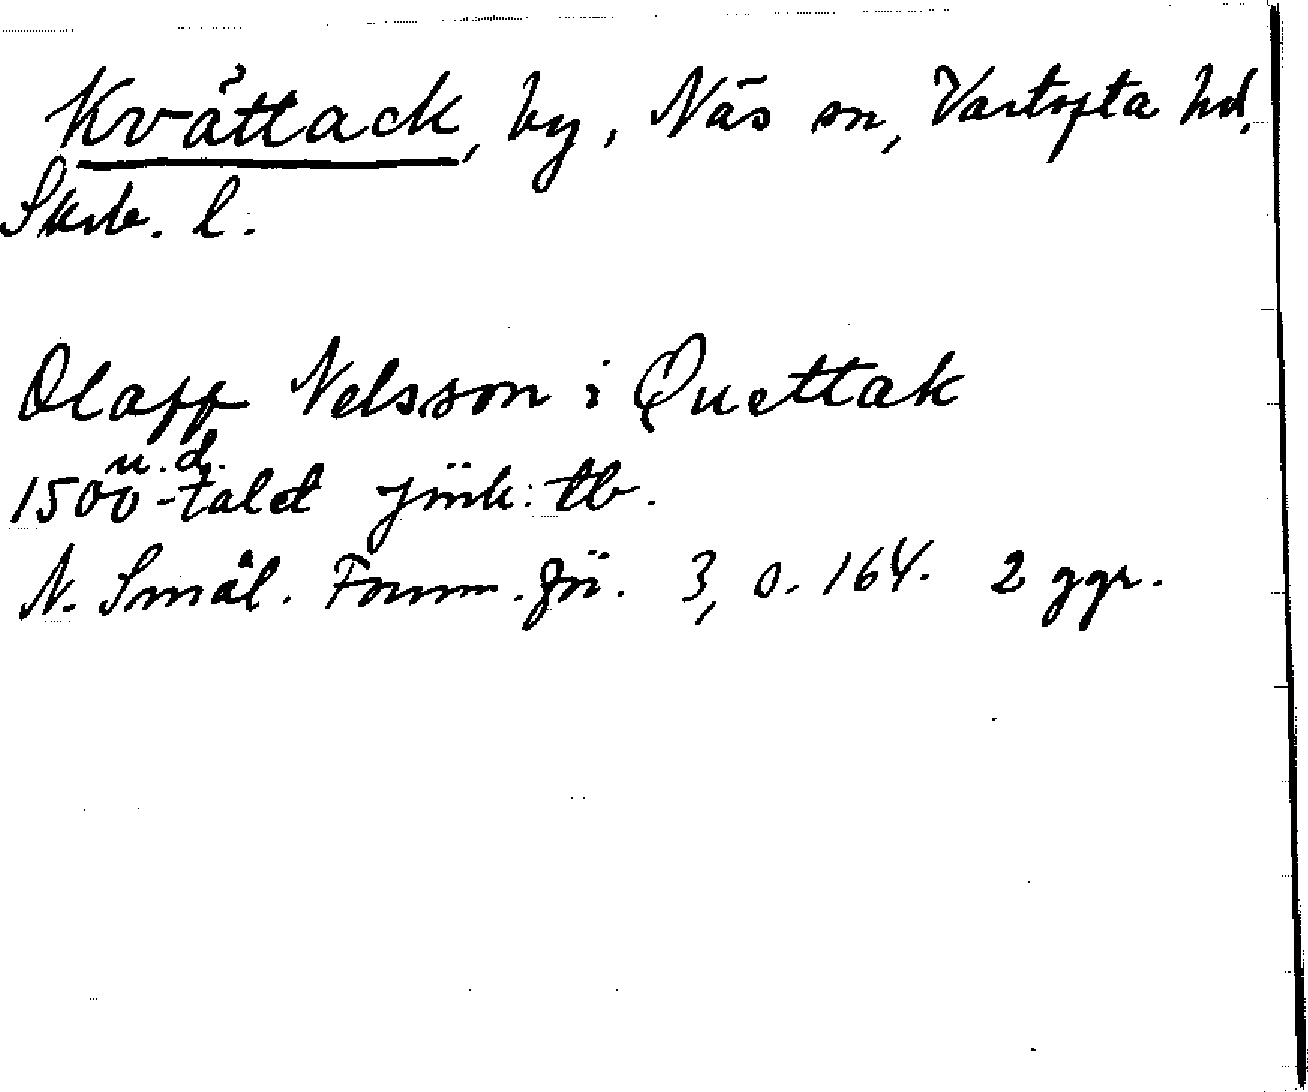 Kvättack, by, Näs sn, Vartofta hd,
Skrb. l.
Olaff Nelsson i Quettak
u.d.
1500-talet jönk: tb.
N. Smål. Fornm. för. 3, s. 164. 2 ggr.